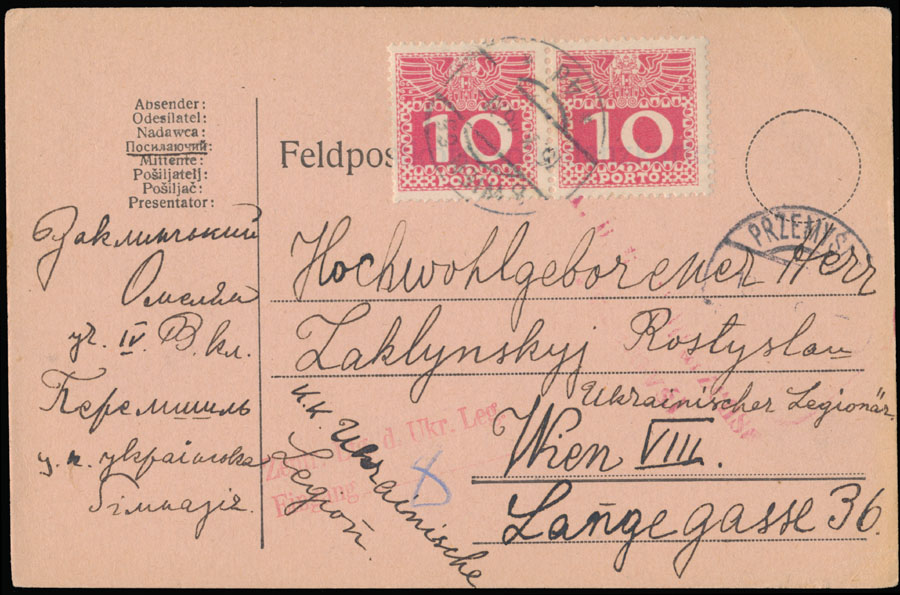 Absender:
Odesílatel:
Nadawca:
Посилаючий:
Mittente:
Pošiljatelj:
Pošiljač:
Presentator:
Feldpos
10
PORTO
10
PORTO
PRZEMYŚL
Заклинський
Омелян
уч. IV. B. кл.
Перемишль
ц. к. українська
Гімназія.
Hochwohlgeborener Herr
Zaklynskyj Rostyslau
Ukrainischer Legionär
Wien VIII.
Langegasse 36.
K.K. Ukrainische
Legion.
d. Ukr. Leg.
Eingang
8